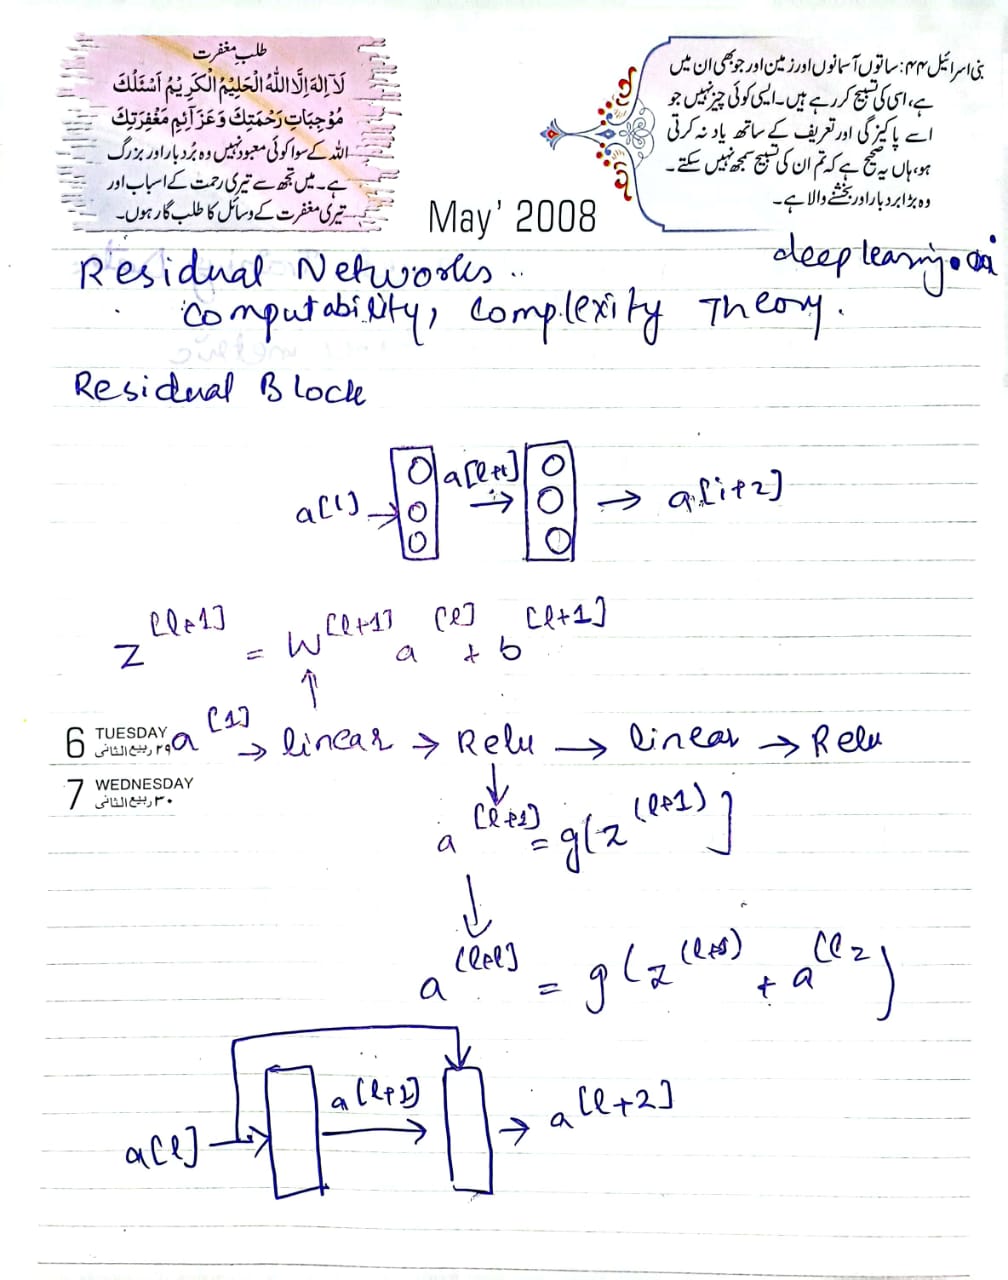 طلب مغفرت
لَآ اِلٰهَ اِلَّا اللّٰهُ الْحَلِيْمُ الْكَرِيْمُ اَسْئَلُكَ
مُوْجِبَاتِ رَحْمَتِكَ وَعَزَآئِمَ مَغْفِرَتِكَ
اللہ کے سوا کوئی معبود نہیں وہ بُردبار اور بزرگ
ہے۔ میں تجھ سے تیری رحمت کے اسباب اور
تیری مغفرت کے وسائل کا طلب گار ہوں۔
بنی اسرائیل ۴۴: ساتوں آسمانوں اور زمین اور جو بھی ان میں
ہے، اسی کی تسبیح کر رہے ہیں۔ ایسی کوئی چیز نہیں جو
اسے پاکیزگی اور تعریف کے ساتھ یاد نہ کرتی
ہو، ہاں یہ صحیح ہے کہ تم ان کی تسبیح سمجھ نہیں سکتے۔
وہ بڑا بردبار اور بخشنے والا ہے۔
May' 2008
deeplearning.ai
Residual Networks..
Computability, Complexity Theory.
Residual Block
a[l] → a[l+1] → → a[i+2]
z[l+1] = W[l+1] a[l] + b[l+1]
6 TUESDAY ۲۹ ربیع الثانی
a[1] → linear → Relu → linear → Relu
7 WEDNESDAY ۳۰ ربیع الثانی
a[l+1] = g(z(l+1)]
= g(z + a
a[l] → a[l+1] → → a[l+2]